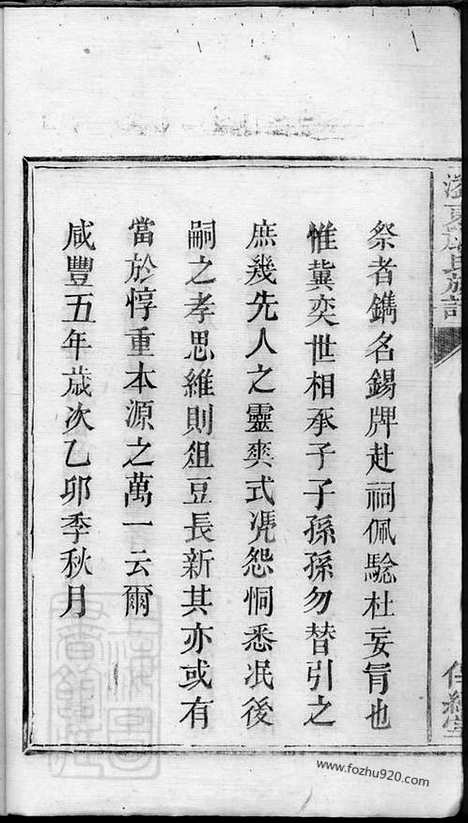 祭者鐫名錫牌赴祠佩騐杜妄冐也
惟冀奕世相承子子孫孫勿替引之
庶幾先人之靈爽式凴怨恫悉泯後
嗣之孝思維則俎豆長新其亦或有
當於惇重本源之萬一云爾
咸豐五年歲次乙卯季秋月
www.fozhu920.com